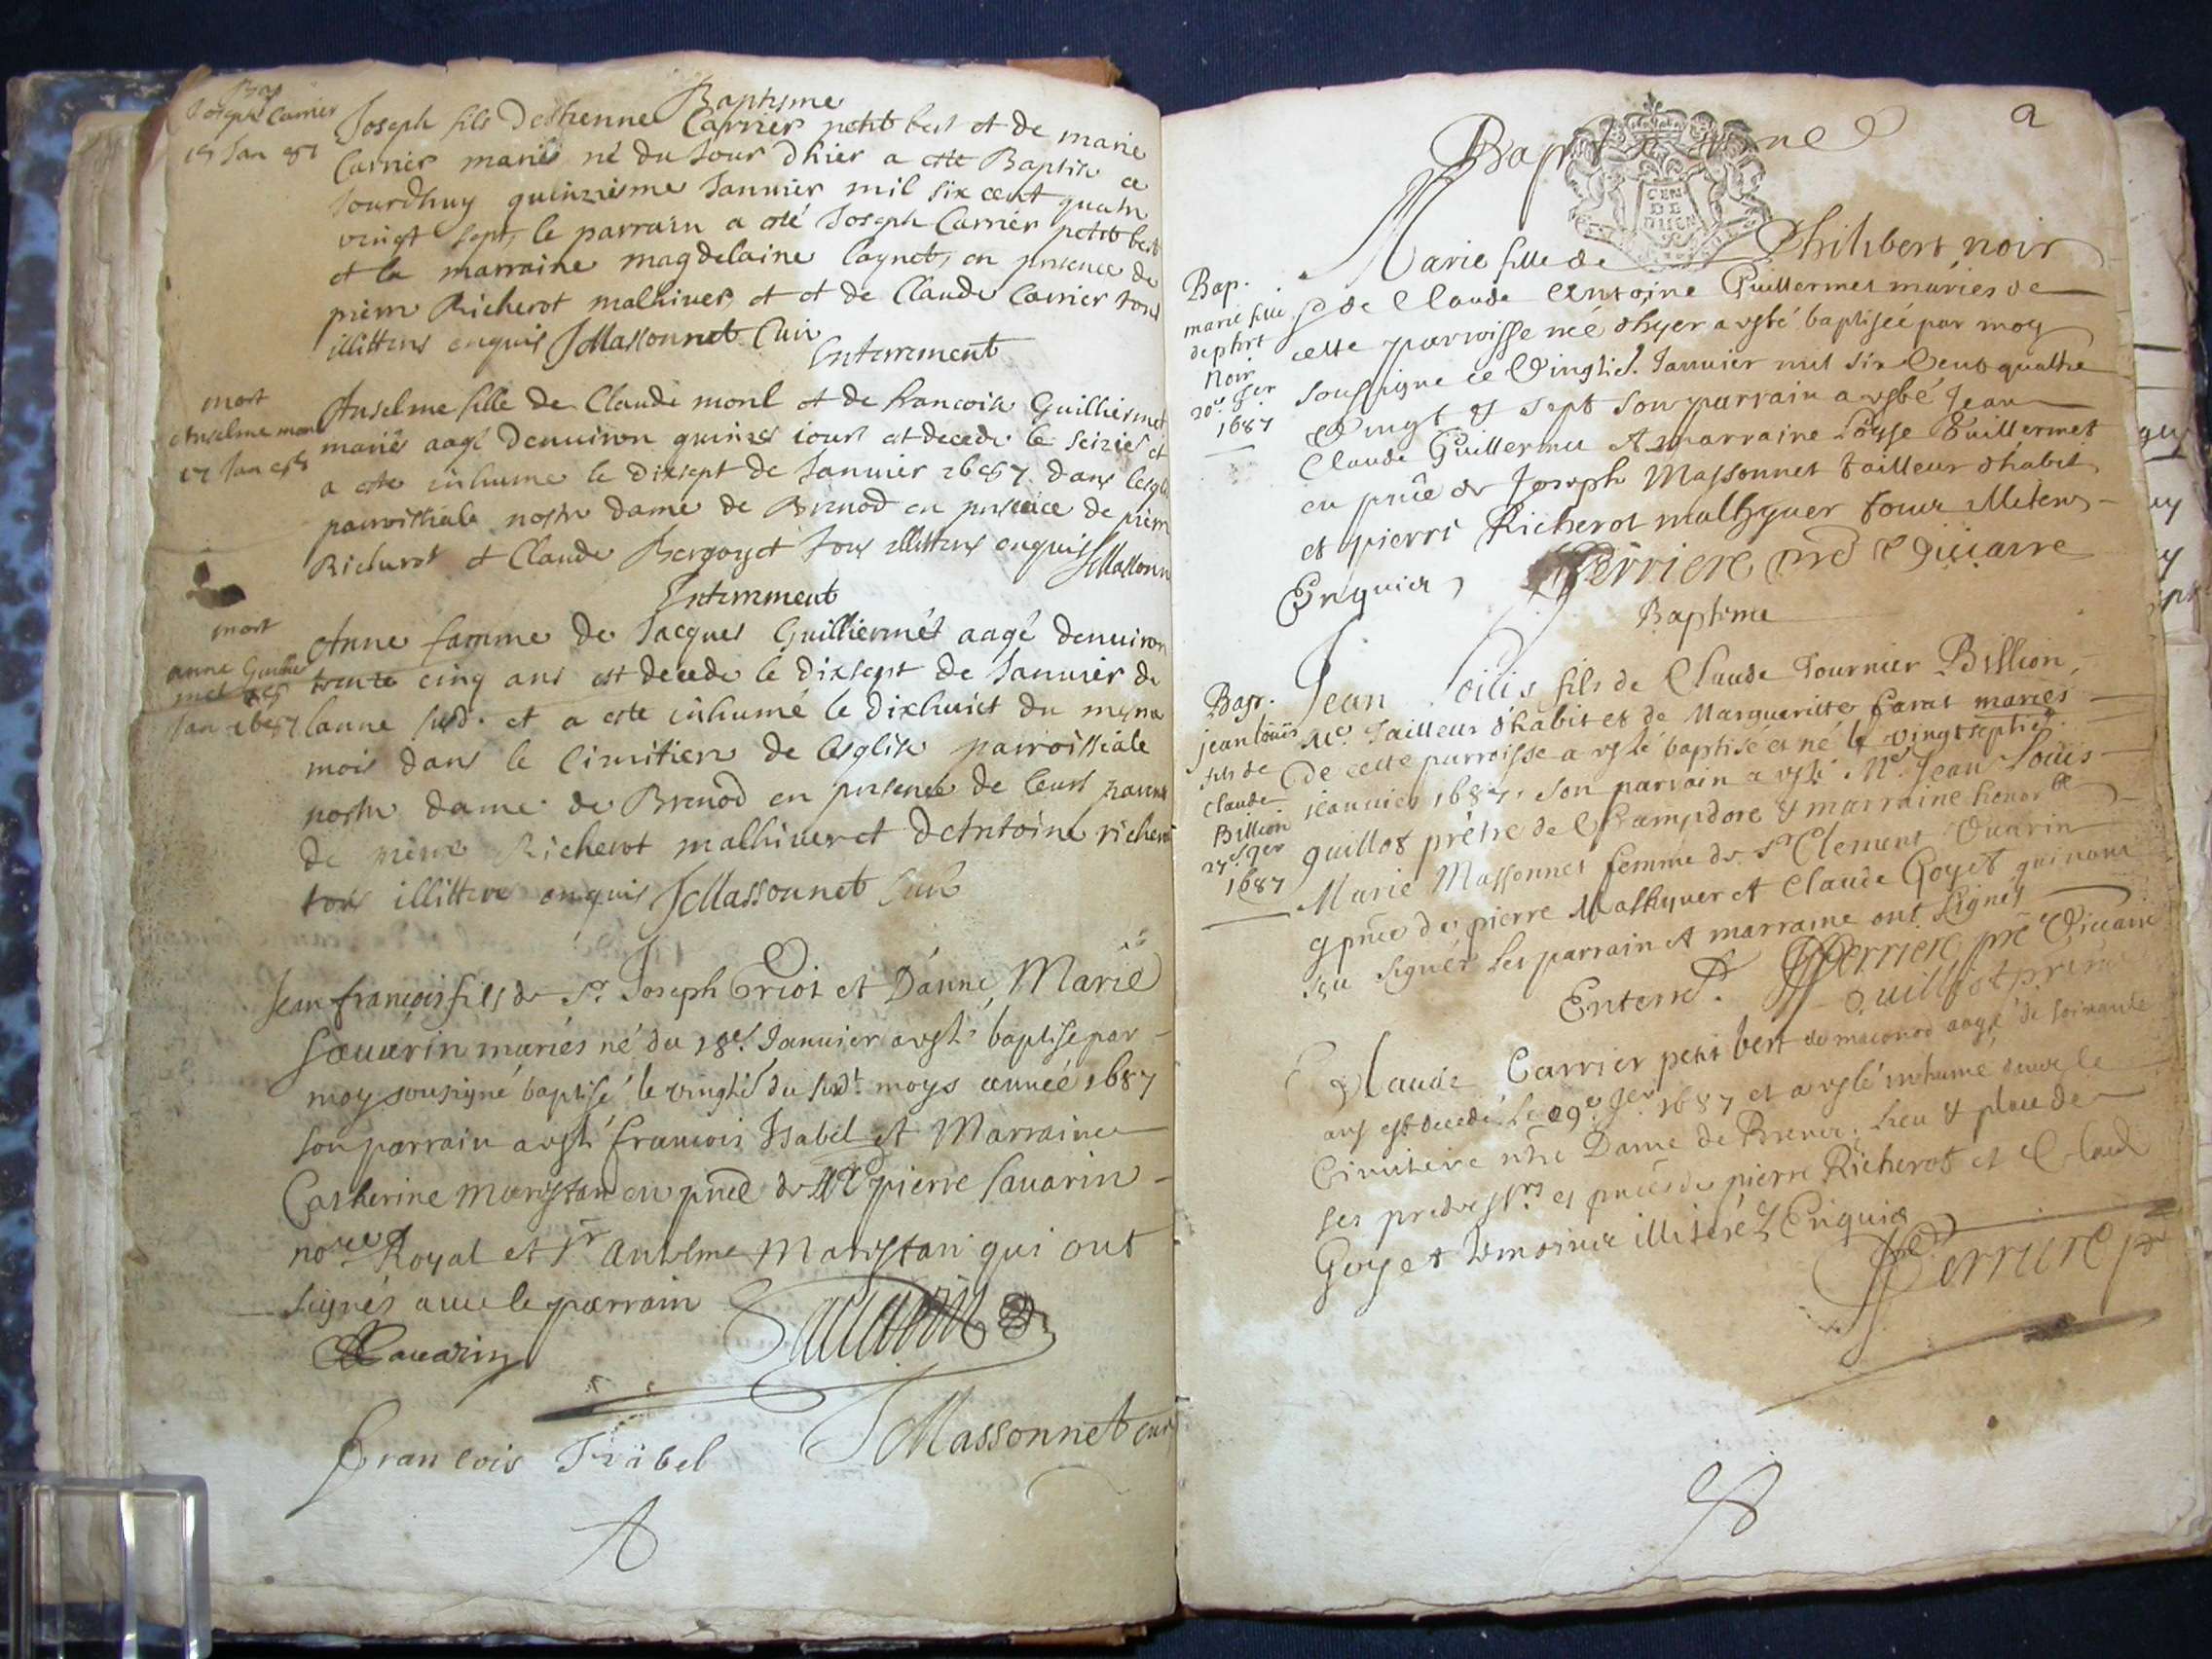 Bap
Joseph Carrier
15 Jan 87
Baptisme
Joseph fils Destienne Carrier petit bert et de marie
Carrier mariés né du Jour dhier a este Baptise ce
Jourdhuy quinziesme Januier mil six cent quatre
vingt sept, le parrain a esté Joseph Carrier petit bert
et la marraine magdelaine Caynet, en presence de
pierre Richerot malhiver et et de Claude Carrier tous
illitterés enquis JMassonnet Curé
Enterrement
mort
Anselme mon
17 Jan
Anselme fille de Claude monl et de francoise Guilliermet
mariés aagé denuiron quinze iours et decede le seizies et
a este inhume le dixsept de Januier 1687 dans lesglise
parroissiale nostre dame de Brenod en presence de pierre
Richerot et Claude tous illitterés enquis JMassonn
Enterrement
mort
anne Guillier
met
Jan 1687
Anne famme de Jacques Guilliermét aagé denuiron
trente cinq ans est decede le dixsept de Januier de
lanne susd. et a este inhumé le dixhuict du mesme
mois dans le Cimitiere de lesglise parroissiale
nostre dame de Brenod en presence de leurs parens
de pierre Richerot malhiver et dAntoine richerot
tous illittere enquis JMassonnet Curé
Jean françois fils de Sr. Joseph Griot et Danne Marie
Sauarin mariés né du 18e. Januier a esté baptise par
moy sousigné baptisé le vingtie du susdt. moys année 1687
son parrain a esté francois Isabel et Marraine
Catherine Marystan en pnce de Me pierre Sauarin
nore Royal et Sr Anselme Marystan qui ont
signés auec le parrain
Sauarin Sauarin
francois Isabel JMassonnet curé
2
Baptisme
CEN
DE
DIJON
Bap.
marie fille
de phrt
Noir
20e Jer
1687
Marie fille de Philibert noir
& de Claude Antoine Guillermet mariés de
cette parroisse née dhyer a esté baptisée par moy
soussigne ce Vingtie. Januier mil six Cents quatre
Vingt & sept son parrain a esté Jean
Claude Guillermet & marraine Loyse Guillermet
en pnce de Joseph Massonnet tailleur dhabit
et pierre Richerot malhyuer tous illiteres
Enquier Perriere Vicaire
Baptême
Bapt.
jean louis
fils de
Claude
Billion
27e Jer
1687
Jean Loüis fils de Claude Tournier Billion
Me. Tailleur dhabit et de Margueritte Carat mariés
de cette parroisse a esté baptisé et né le vingtseptie.
jeanuier 1687. son parrain a esté Me. Jean Louis
guillot prêtre de Champdore & marraine honorble
Marie Massonnet femme de Sr Clement Ouarin
& pnce de pierre Malhyuer et Claude Goyet qui n'ont
sçu signer Les parrain et marraine ont signes
Perriere pre Vicaire
Guilliot prètre
Enterrt.
Claude Carrier petit bert de maconod aagé de soixante
ans est decedé Le 29e. Jer 1687 et a esté inhumé dans le
Cimitiere nre Dame de Brenod, lieu & place de
ses predesrs et pnces de pierre Richerot et Claude
Goyet temoins illiterés Enquis
Perriere pr